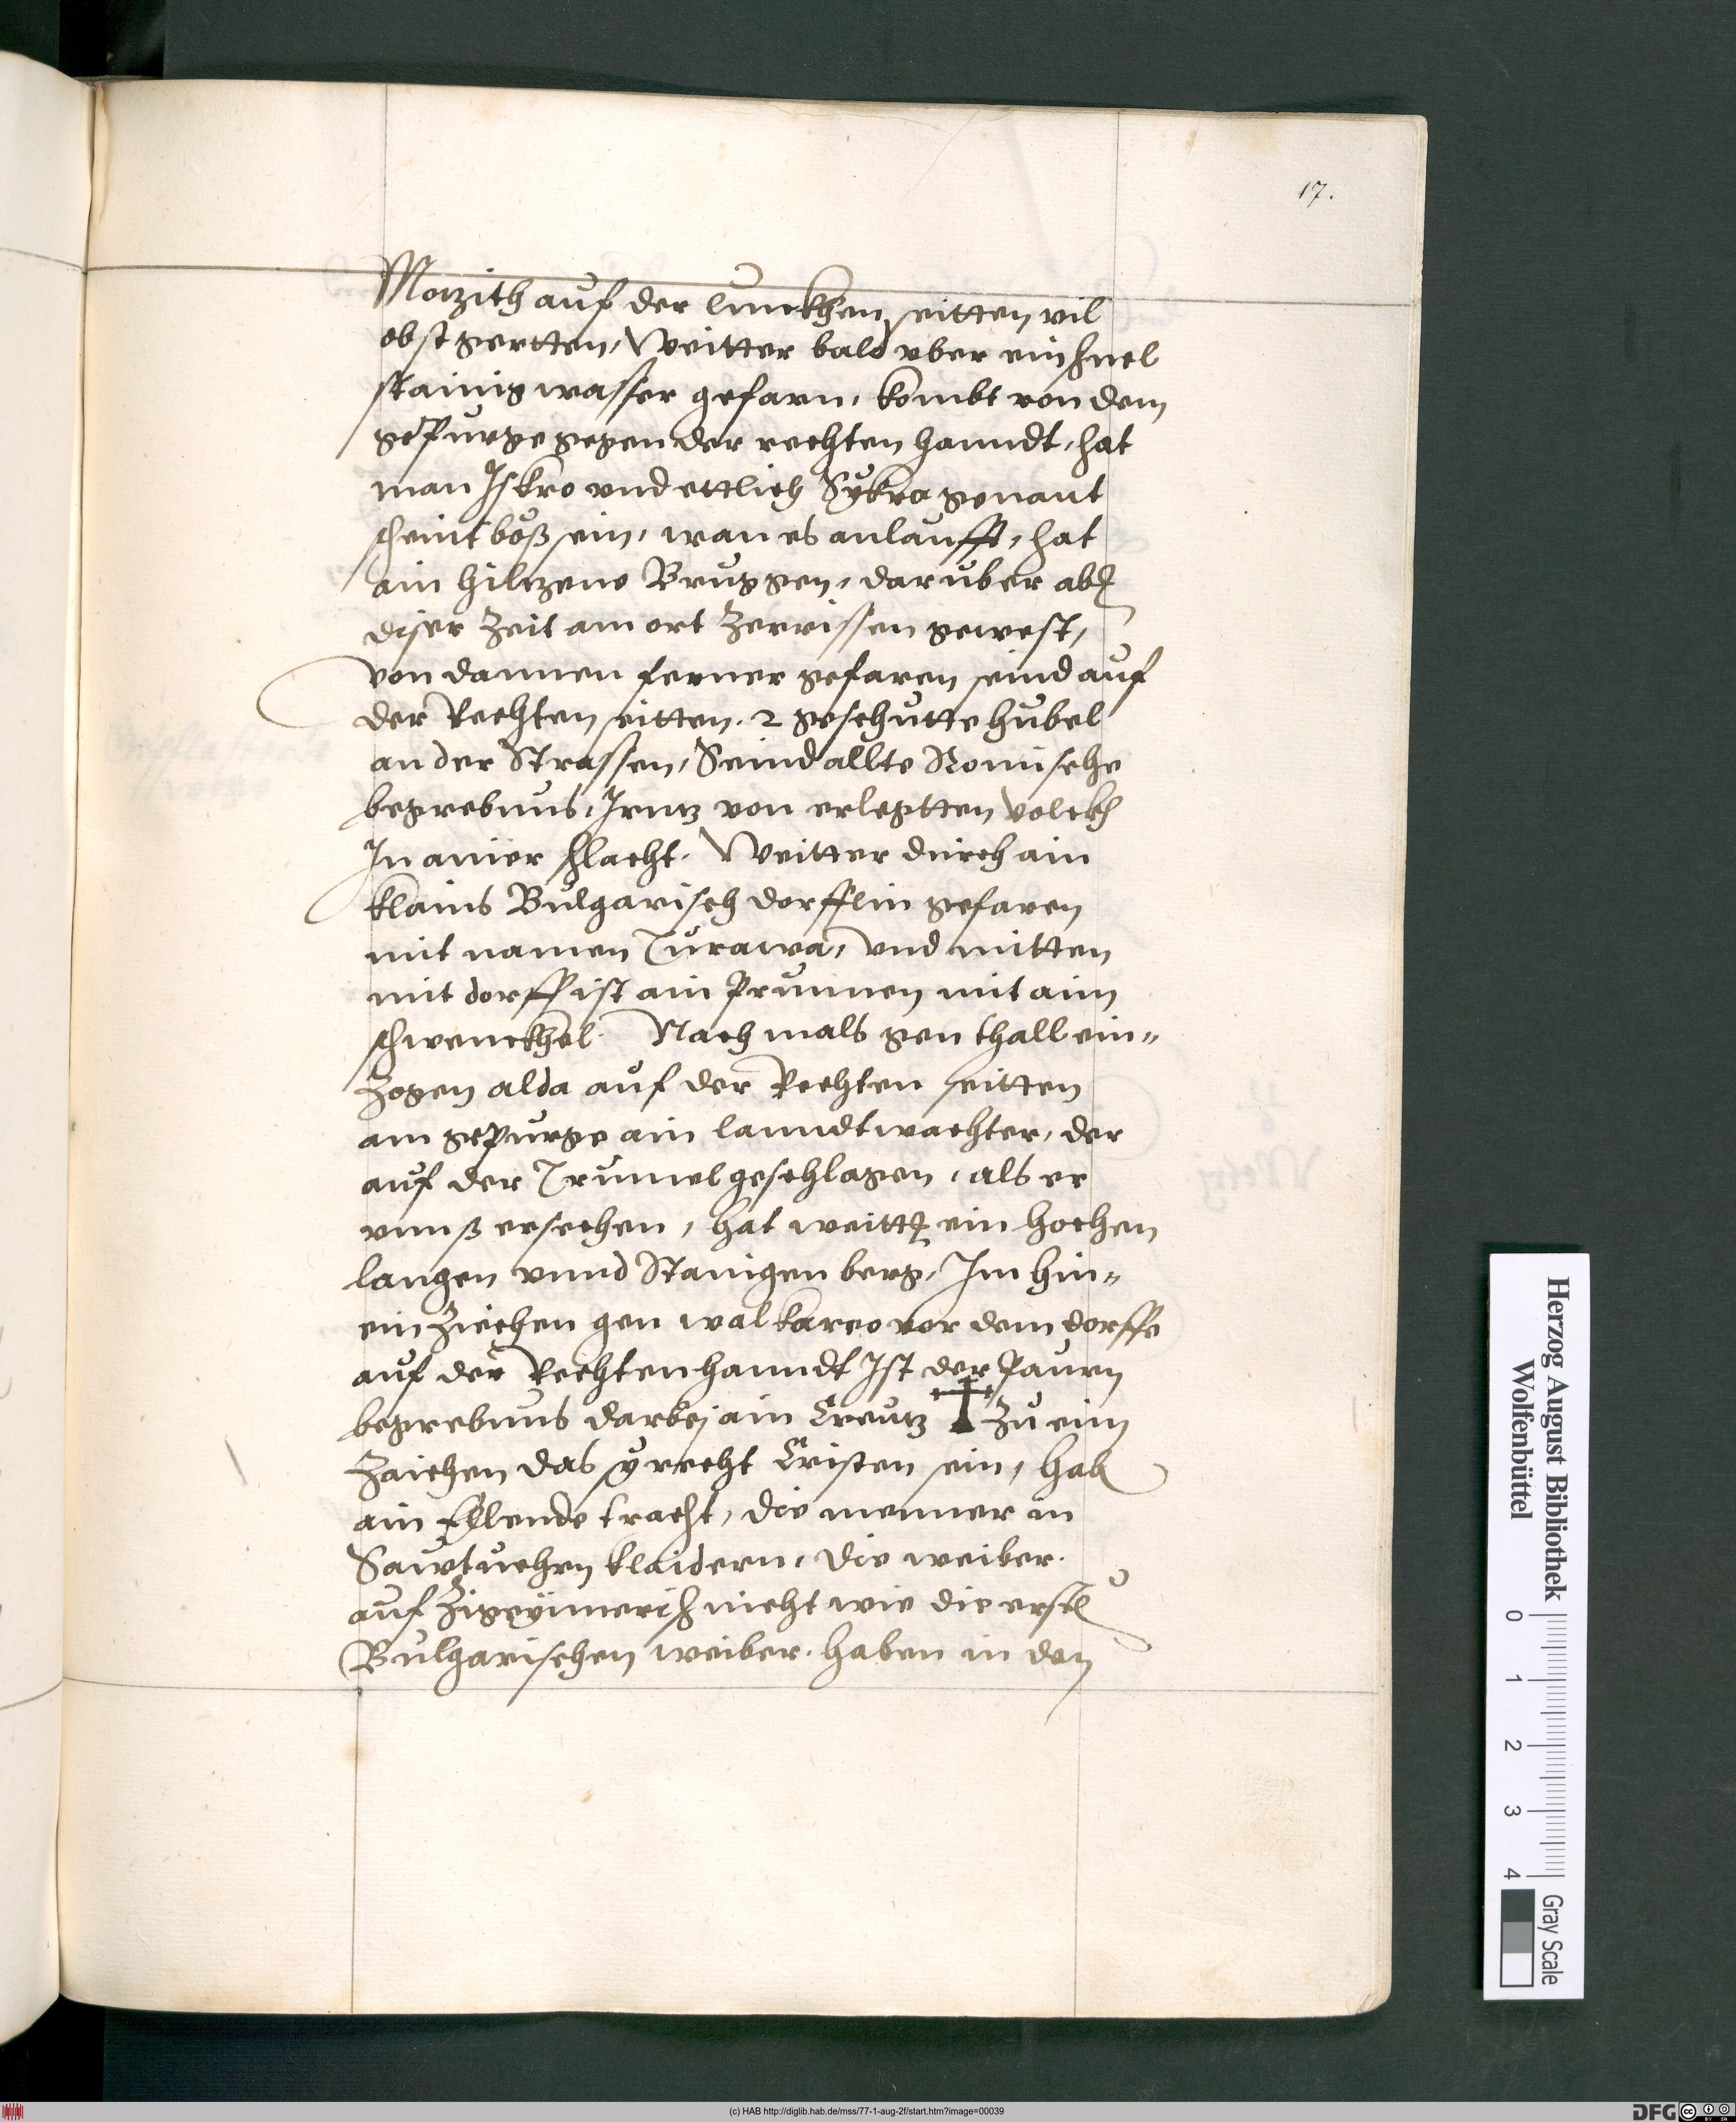 17.
Mozith auf der linckhen seitten vil
obst gertten, Weitter bald vber ein schnel
stainig wasser gefarn, kombt von dem
gepurge gegen der rechten hanndt, hat
man Iskro vnd ettlich Sykra genant
scheint böß sein, wan es anlaufft, hat
ain hilczene Bruggen, daruber aber
diser Zeit am ort Zerrissen gewest,
von dannen ferner gefaren seind auf
der Rechten seitten 2 geschutte hubel
an der Strassen, Seind allte Romische
begrebnus, von erlegtten volckh
In ainer schlacht. Weitter durch ain
klains Bulgarisch dorfflin gefaren
mit namen Turawa, vnd mitten
mit dorff ist ain Prunnen mit aim
schwenckhel. Nachmals gen thall ein„
Zogen alda auf der Rechten seitten
am gepurge ain lanndtwachter, der
auf der Trumel geschlagen, als er
vnnß ersechen, hat weitter ein hochen
langen vnnd Stanigen berg, Im hin„
ein Ziechen gen walkareo vor dem dorffe
auf der Rechten hanndt Ist der Paurn
begrebnus darbej ain Creutz ‡ Zu eim
Zaichen das sy recht Cristen sein, haben
ain Ellende tracht, die menner in
Sawtuechen klaidern, die weiber
auf Zigeÿnnerisch nicht wie die ersten
Bulgarischen weiber, haben in den
Herzog August Bibliothek
Wolfenbüttel
0 1 2 3 4
Gray Scale
(c) HAB http://diglib.hab.de/mss/77-1-aug-2f/start.htm?image=00039
DFG